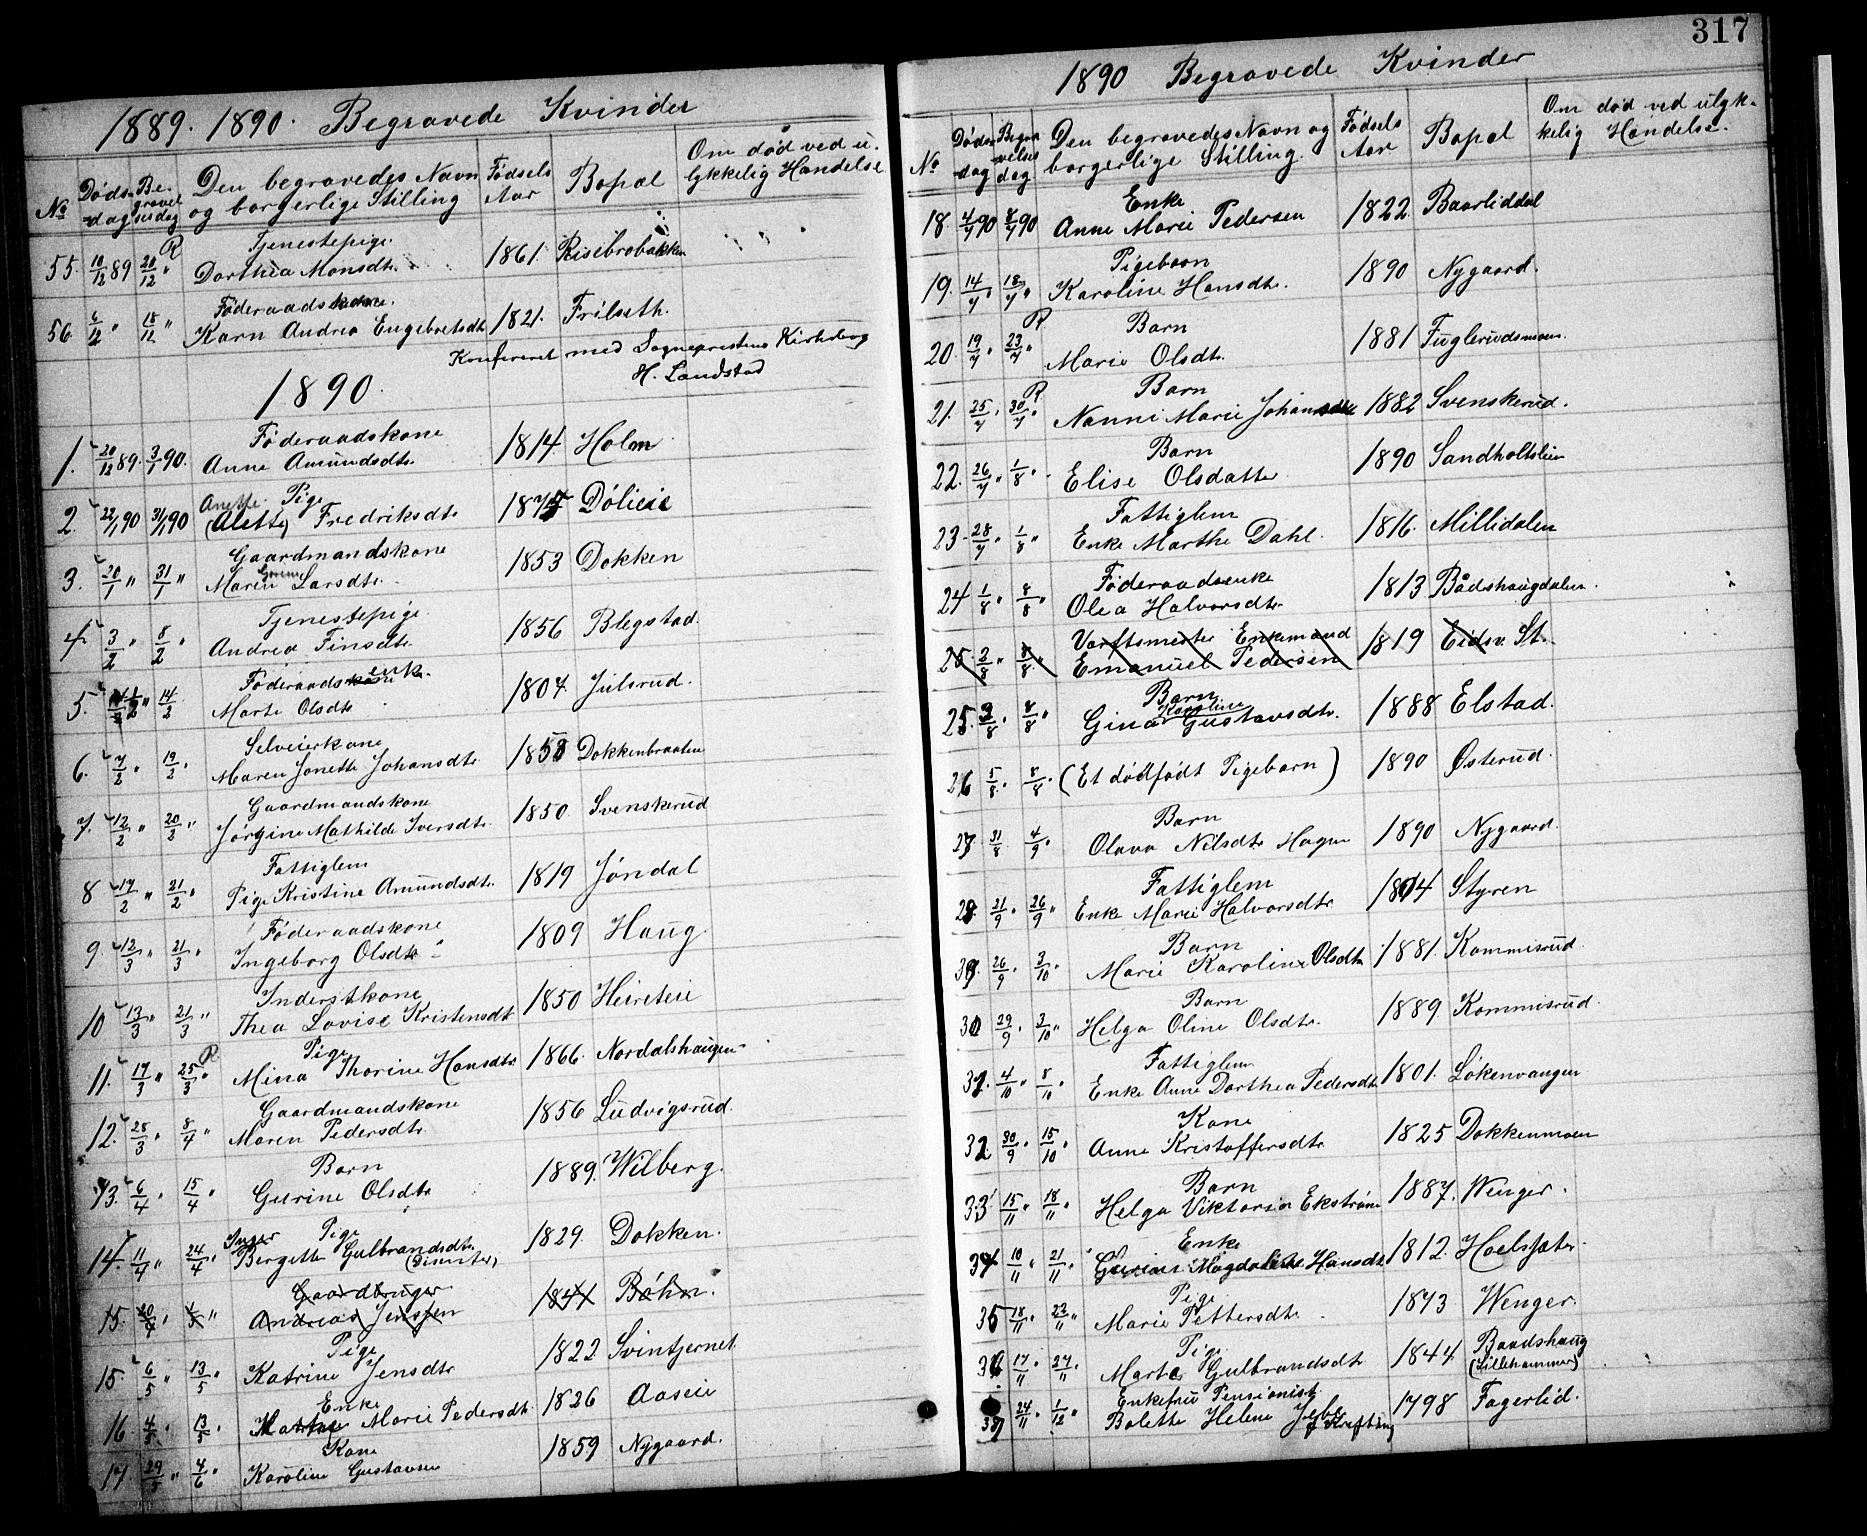 1889. 1890. Begravede Kvinder
No Døds-dag Be-gravelsesdag Den begravedes Navn og borgerlige Stilling Fødsels Aar Bopæl Om død ved u-lykkelig Hændelse
R
Tjenestepige
55. 10/12 89 20/12 " Dorthea Monsdtr. 1861. Risebrobakken
Føderaadskone.
56. 6/12 " 15/12 " Karn Andrea Engebretsdtr 1821. Frilseth.
Konfereret med Sogneprestens Kirkebog
H. Landstad
1890.
Føderaadskone
1. 20/12 89. 3/1 90. Anne Amundsdtr. 1814. Holm
Anette Pige
2. 22/1 90 31/1 90 (Alette) Fredriksdtr. 1874 Dølieie
Gaardmandskone
3. 20/1 " 31/1 " Maren Larsdtr. 1853 Dokken
Tjenestepige
4. 3/2 " 8/2 " Andrea Finsdtr. 1856 Blegstad
Føderaadsenke.
5. 14/2 Marte Olsdtr 1807. Julsrud.
Selveierkone
6. 7/2 " 19/2 " Maren Jonette Johansdtr. 1858 Dokkenbraaten
Gaardmandskone
7. 12/2 " 20/2 " Jørgine Mathilde Iversdtr. 1850 Svenskerud
Fattiglem
8 17/2 " 21/2 " Pige Kristine Amundsdtr. 1819 Jøndal
Føderaadskone
9. 12/3 " 21/3 " Ingeborg Olsdtr 1809 Haug.
Inderstkone
10 13/3 " 21/3 " Thea Lovise Kristensdtr 1850 Heireteie
Pige R
11. 17/3 " 25/3 " Mina Thorine Hansdtr. 1866. Nordalshaugen
Gaardmandskone
12. 28/3 " 8/4 " Maren Pedersdtr 1856 Ludvigsrud.
Barn
13. 6/4 " 15/4 " Gurine Olsdtr 1889. Wilberg.
Inger Pige
14. 11/4 " 24/4 " Bergitte Gulbrandsdtr. 1829. Dokken.
Gaardbruger
15. 20/4 " Andreas Jenssen 1841 Bøhn.
Pige
15. 6/5 " 13/5 " Katrine Jensdtr 1822 Svintjernet
Enke
16. 4/5 " 13/5 " Marie Pedersdtr. 1826 Aaseie
Kone
17. 29/5 " 4/6 " Karoline Gustavsen 1859 Nygaard.
317
1890 Begravede Kvinder
No Døds-dag Begravelses dag Den begravedes Navn og borgerlige Stilling. Fødsels Aar Bopæl Om død ved ulyk-kelig Hændelse.
Enke
18. 4/7 90 8/7 90 Anne Marie Pedersen 1822. Baarliddal
Pigebarn
19. 14/7 " 18/7 " Karoline Hansdtr. 1890 Nygaard.
R Barn
20. 19/7 " 23/7 " Marie Olsdtr. 1881 Fuglerudsmoen.
R Barn
21. 25/7 " 30/7 " Nanni Marie Johansdtr 1882 Svenskerud.
Barn
22. 26/7 " 1/8 " Elise Olsdatter 1890 Sandholtslien
Fattiglem
23. 28/7 " 1/8 " Enke Marthe Dahl. 1816. Millidalen
Føderaadsenke
24 1/8 " 8/8 " Olea Halvorsdtr. 1813 Bådshaugdalen.
Værftsmester Enkemand
25 2/8 " 8/8 " Emanuel Pedersen 1819 Eidsv. St.
Barn
Karoline
25. 3/8 " 8/8 " Gina Gustavsdtr. 1888 Elstad.
26 5/8 " 8/8 " (Et dødfødt Pigebarn) 1890 Østerud.
Barn
27 31/8 4/9 " Olava Nilsdtr Hagen 1890 Nygaard.
Fattiglem
28. 21/9 " 26/9 " Enke Marie Halvorsdtr 1804 Styren
Barn
26/9 " 3/10 " Marie Karoline Olsdtr 1881. Kommisrud.
Barn
30 29/9 " 3/10 " Helga Oline Olsdtr. 1889. Kommisrud.
Fattiglem
31. 4/10 " 8/10 " Enke Anne Dorthea Pedersdtr 1801. Løkenvangen
Kone
32. 30/9 " 15/10 " Anne Kristoffersdtr 1825 Dokkenmoen
Barn
33 15/11 " 18/11 " Helga Viktoria Ekstrøm 1887. Wenger.
Enke
34 10/11 " 21/11 " Magdalene Hansdtr. 1812. Hoelsjæter.
Pige
35 18/11 " 22/11 " Marie Pettersdtr. 1873 Wenger.
Pige
36 17/11 " 27/11 " Marte Gulbrandsdtr 1844. Baadshaug
(Lillehammer)
Enkefru Pensionist
37 24/11 " 1/12 " Bolette Helene f. Krefting 1798 Fagerlid.